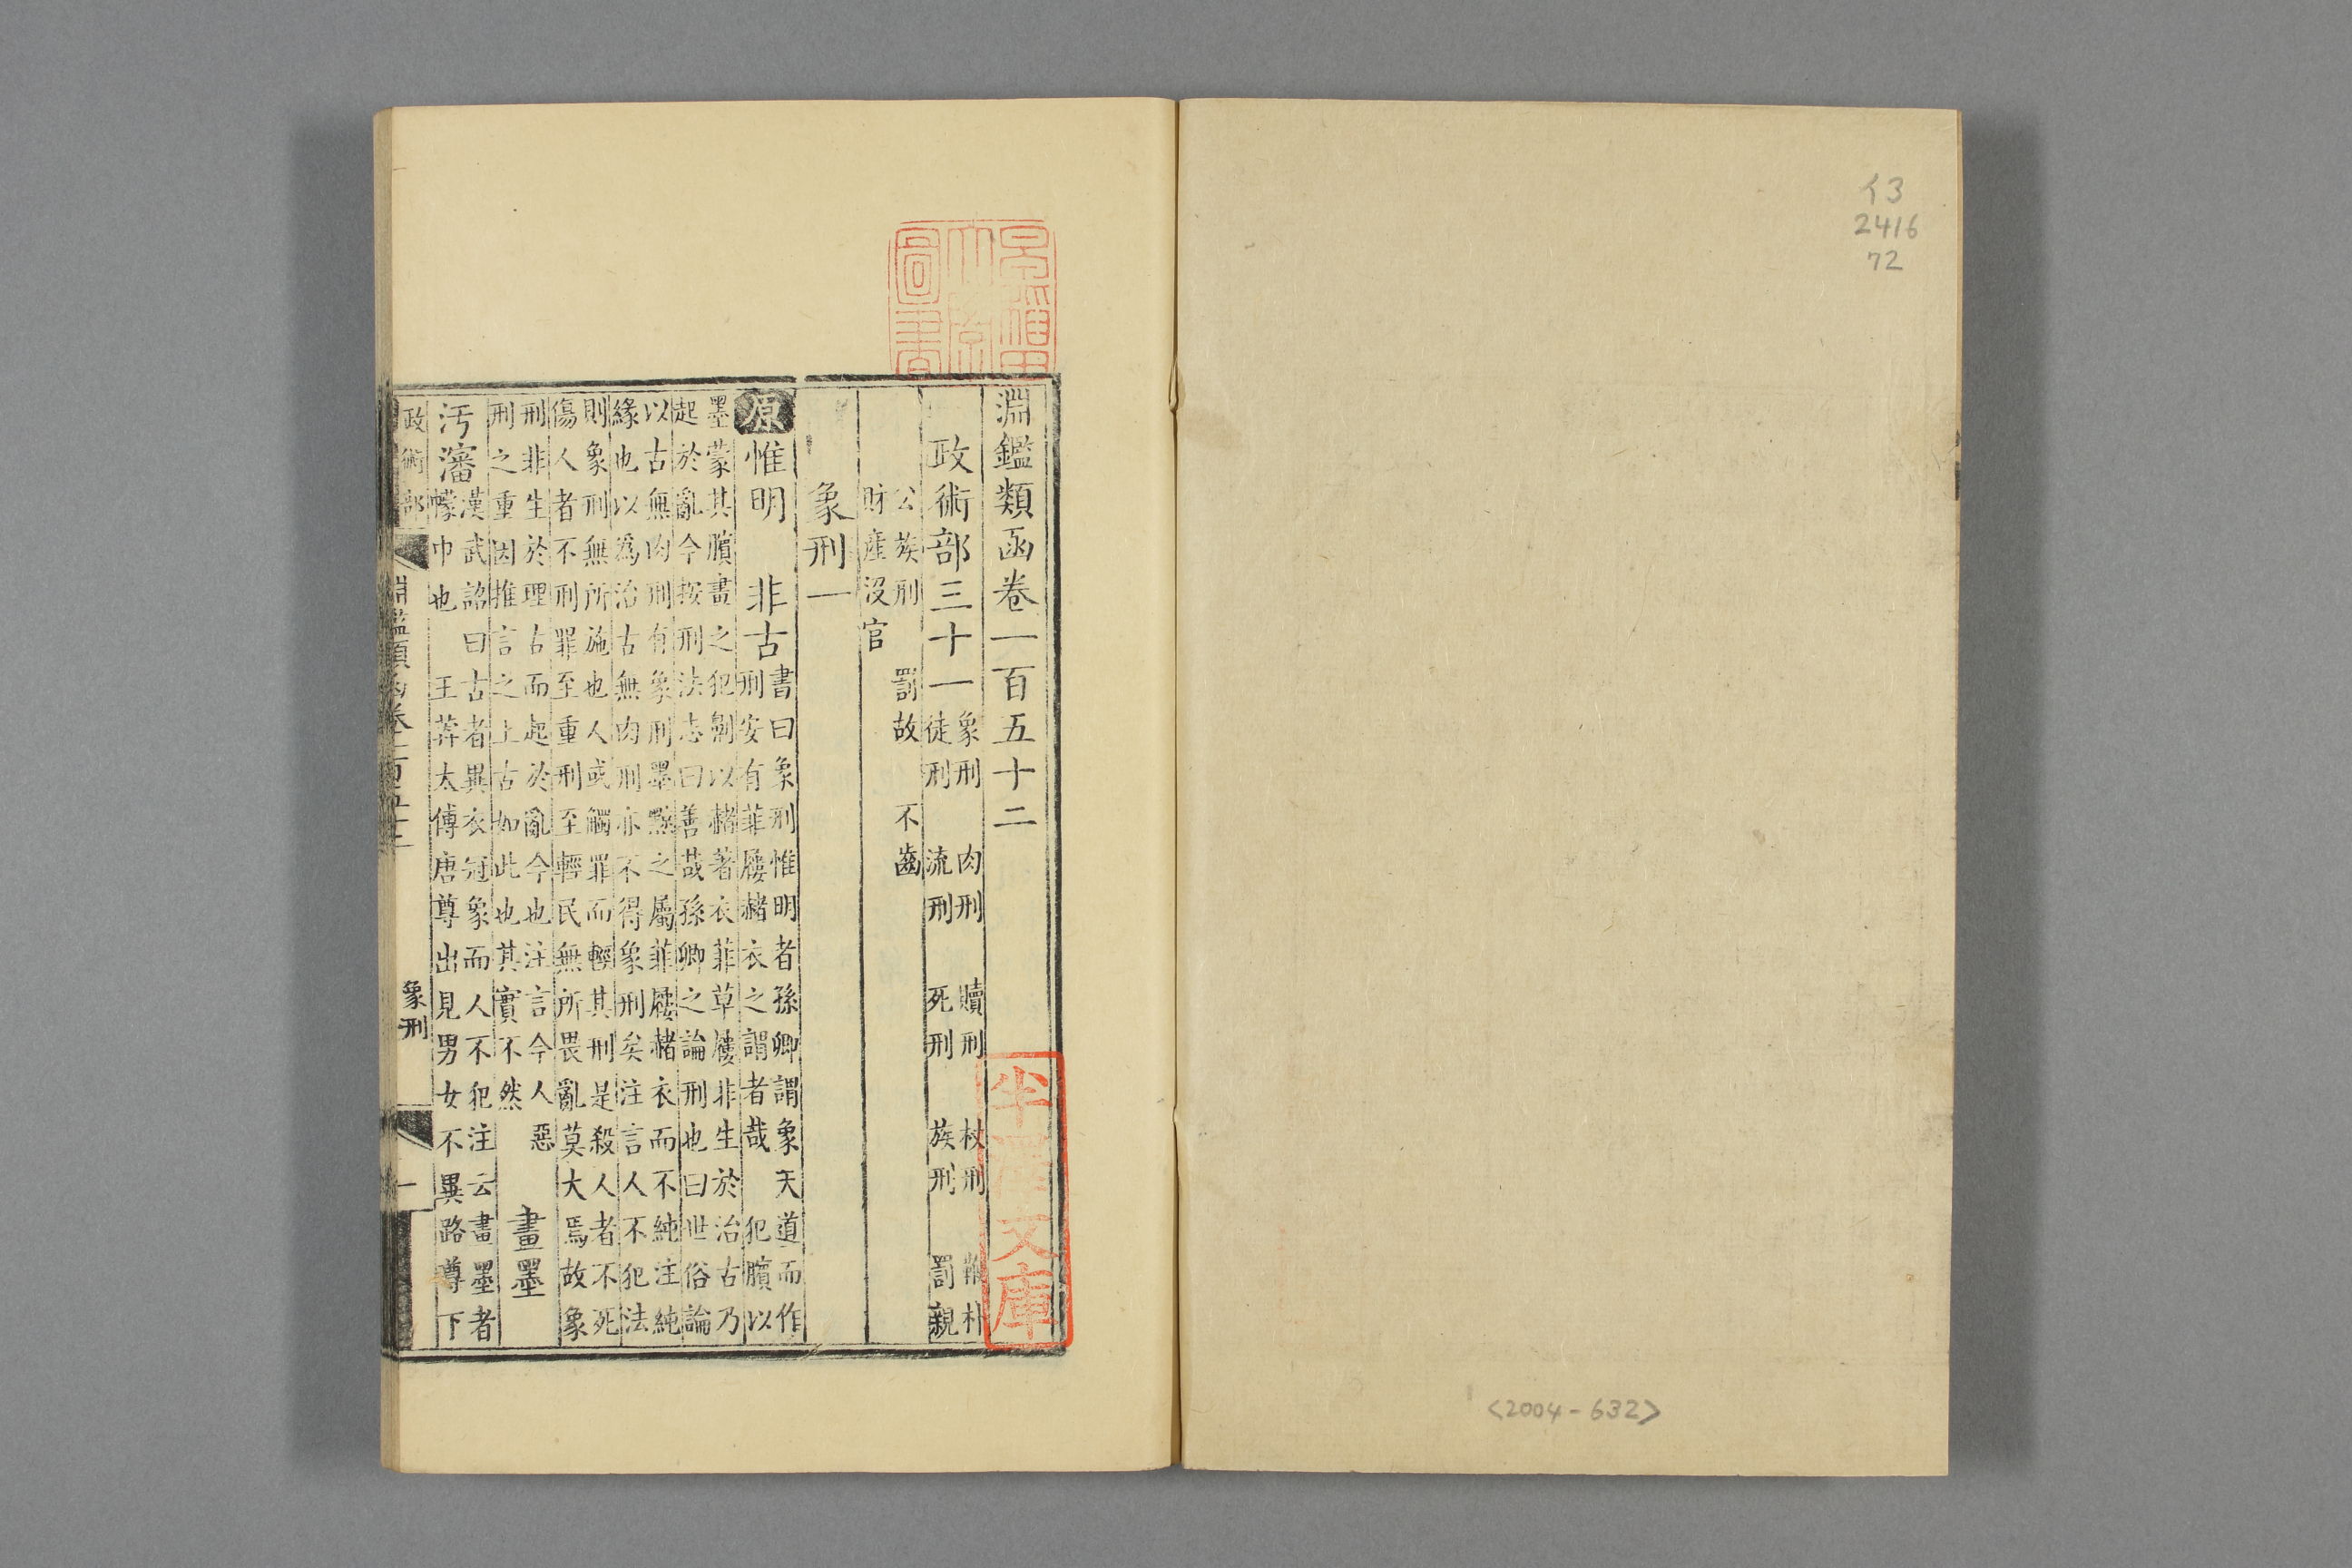 イ3
2416
72
<2004-632>
淵鑑類函卷一百五十二
政術部三十一
象刑 肉刑 贖刑 杖刑 鞭朴
徒刑 流刑 死刑 族刑 罰親
公族刑 罰故 不齒
財產沒官
象刑一
原惟明 非古
書曰象刑惟明者孫卿謂象天道而作
刑安有菲屨赭衣之謂者哉 犯臏以
墨蒙其臏畫之犯劓以赭著衣菲草屨非生於治古乃
起於亂今按刑法志曰善哉孫卿之論刑也曰世俗論
以古無肉刑有象刑墨黥之屬菲屨赭衣而不純注純
緣也以為治古無肉刑亦不得象刑矣注言人不犯法
則象刑無所施也人或觸罪而輕其刑是殺人者不死
傷人者不刑罪至重刑至輕民無所畏亂莫大焉故象
刑非生於理古而起於亂今也注言今人惡
刑之重因推言之上古如此也其實不然
畫墨
汚瀋
漢武詔曰古者異衣冠象而人不犯注云畫墨者
幪巾也 王莽太傅唐尊出見男女不異路尊下
政術部 淵鑑類函卷一百五十二 象刑 一
圖書
文庫